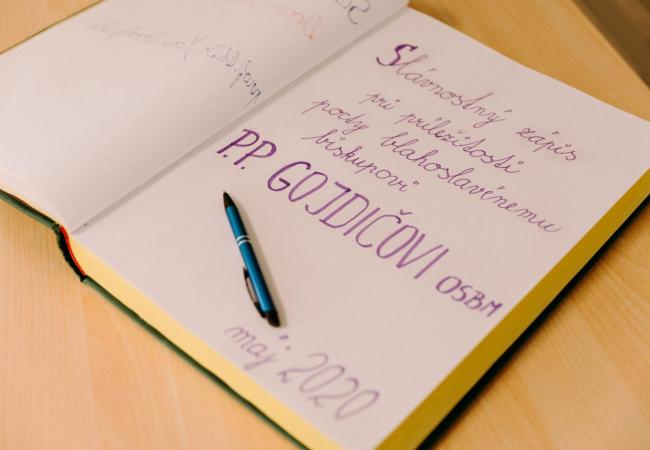 Slávnostný zápis
pri príležitosti
pocty blahoslavenému
biskupovi
P.P. GOJDIČOVI OSBM
máj 2020